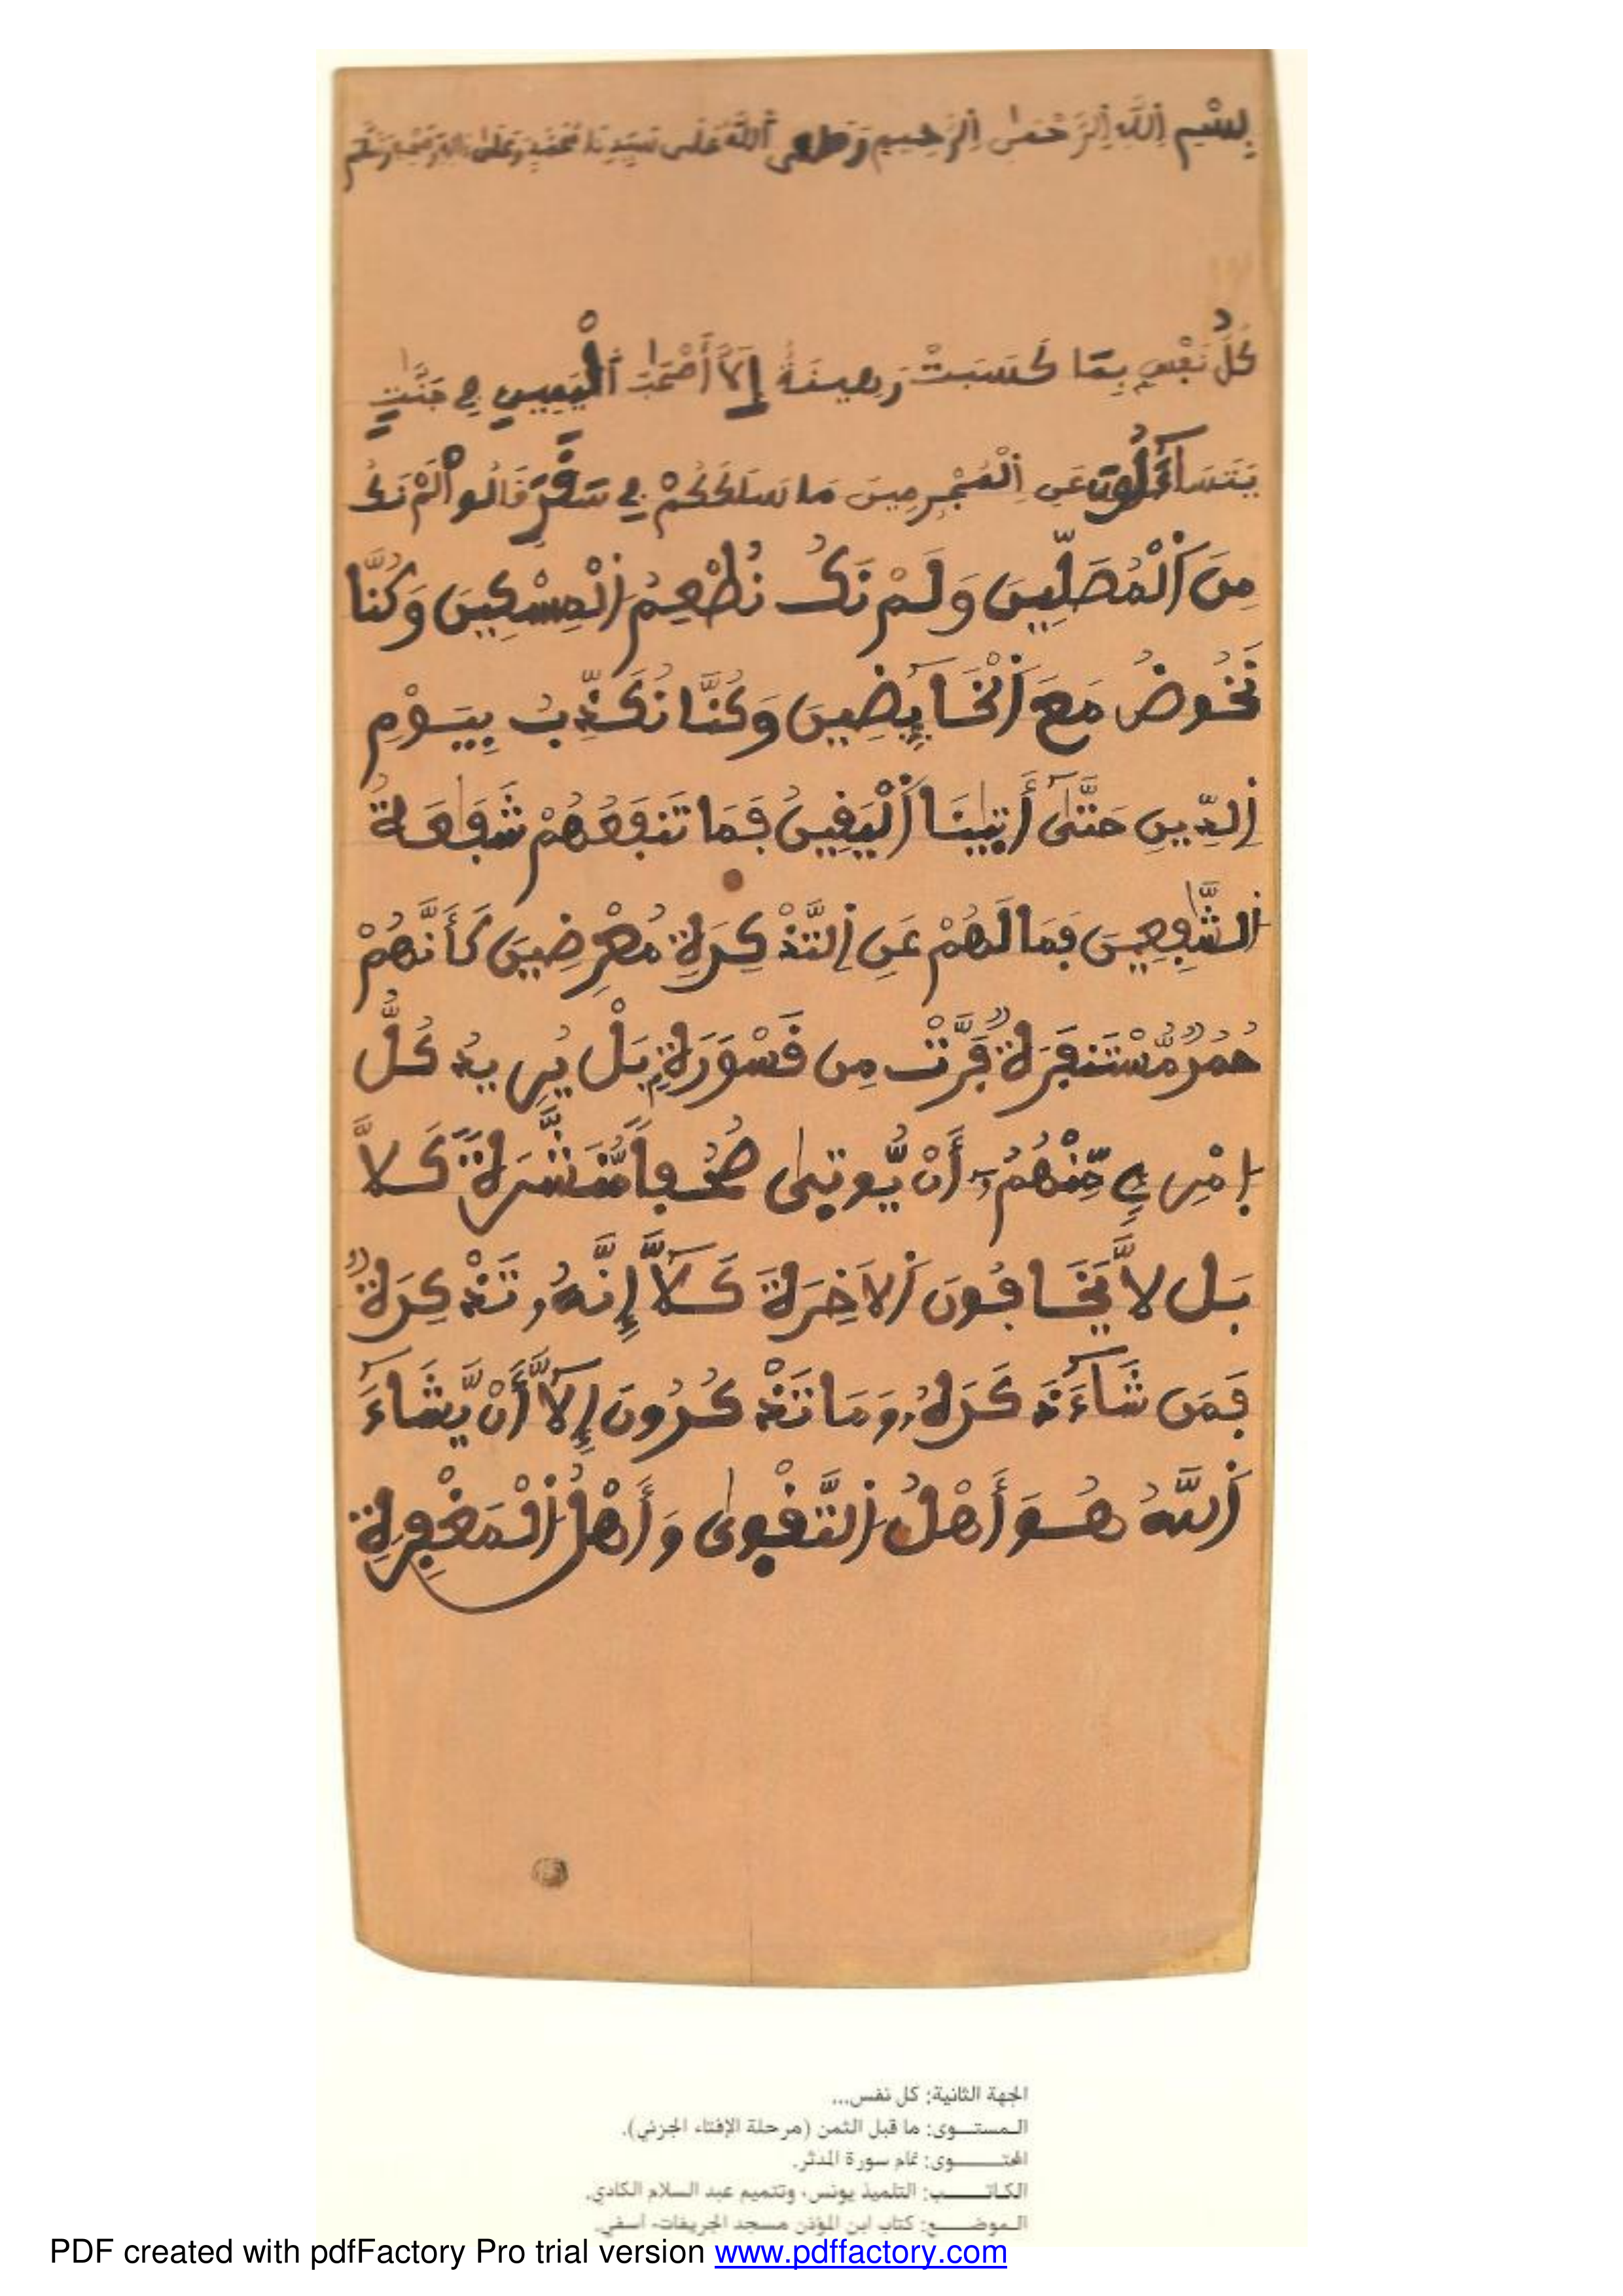 بِسْمِ اِللَّهِ اِلرَّحْمَٰنِ اِلرَّحِيمِ وَصَلَّى اَللَّهُ عَلَى سَيِّدِنَا مُحَمَّدٍ وَعَلَىٰ ءَالِهِ وَصَحْبِهِ وَسَلَّمَ
كُلُّ نَفْسٍ بِمَا كَسَبَتْ رَهِينَةٌ إِلَّآ أَصْحَٰبَ اَلْيَمِينِ فِے جَنَّٰتٍ
يَتَسَآءَلُونَ عَنِ اِلْمُجْرِمِينَ مَا سَلَكَكُمْ فِے سَقَرَ قَالُواْ لَمْ نَكُ
مِنَ اَلْمُصَلِّينَ وَلَمْ نَكُ نُطْعِمُ اُلْمِسْكِينَ وَكُنَّا
نَخُوضُ مَعَ اَلْخَآئِضِينَ وَكُنَّا نُكَذِّبُ بِيَوْمِ
اِلدِّينِ حَتَّىٰٓ أَتَيٰنَا اَلْيَقِينُ فَمَا تَنفَعُهُمْ شَفَٰعَةُ
اُلشَّٰفِعِينَ فَمَا لَهُمْ عَنِ اِلتَّذْكِرَةِ مُعْرِضِينَ كَأَنَّهُمْ
حُمُرٌ مُّسْتَنفَرَةٌ فَرَّتْ مِن قَسْوَرَةٍ بَلْ يُرِيدُ كُلُّ
اُمْرِےٕ مِّنْهُمُۥٓ أَنْ يُّوتٜىٰ صُحُفاً مُّنَشَّرَةً كَلَّا
بَل لَّا يَخَافُونَ اَلَاخِرَةَ كَلَّآ إِنَّهُۥ تَذْكِرَةٌ
فَمَن شَآءَ ذَكَرَهُۥ وَمَا تَذْكُرُونَ إِلَّآ أَنْ يَّشَآءَ
اَللَّهُ هُوَ أَهْلُ اُلتَّقْوٜىٰ وَأَهْلُ اُلْمَغْفِرَةِ
الجهة الثانية: كل نفس...
المستـــوى: ما قبل الثمن (مرحلة الإفتاء الجزئي).
المحتـــــوى: تمام سورة المدثر.
الكـاتـــــب: التلميذ يونس، وتتميم عبد السلام الكادي.
الموضــــع: كتاب ابن المؤذن مسجد الجريفات- آسفي.
PDF created with pdfFactory Pro trial version www.pdffactory.com